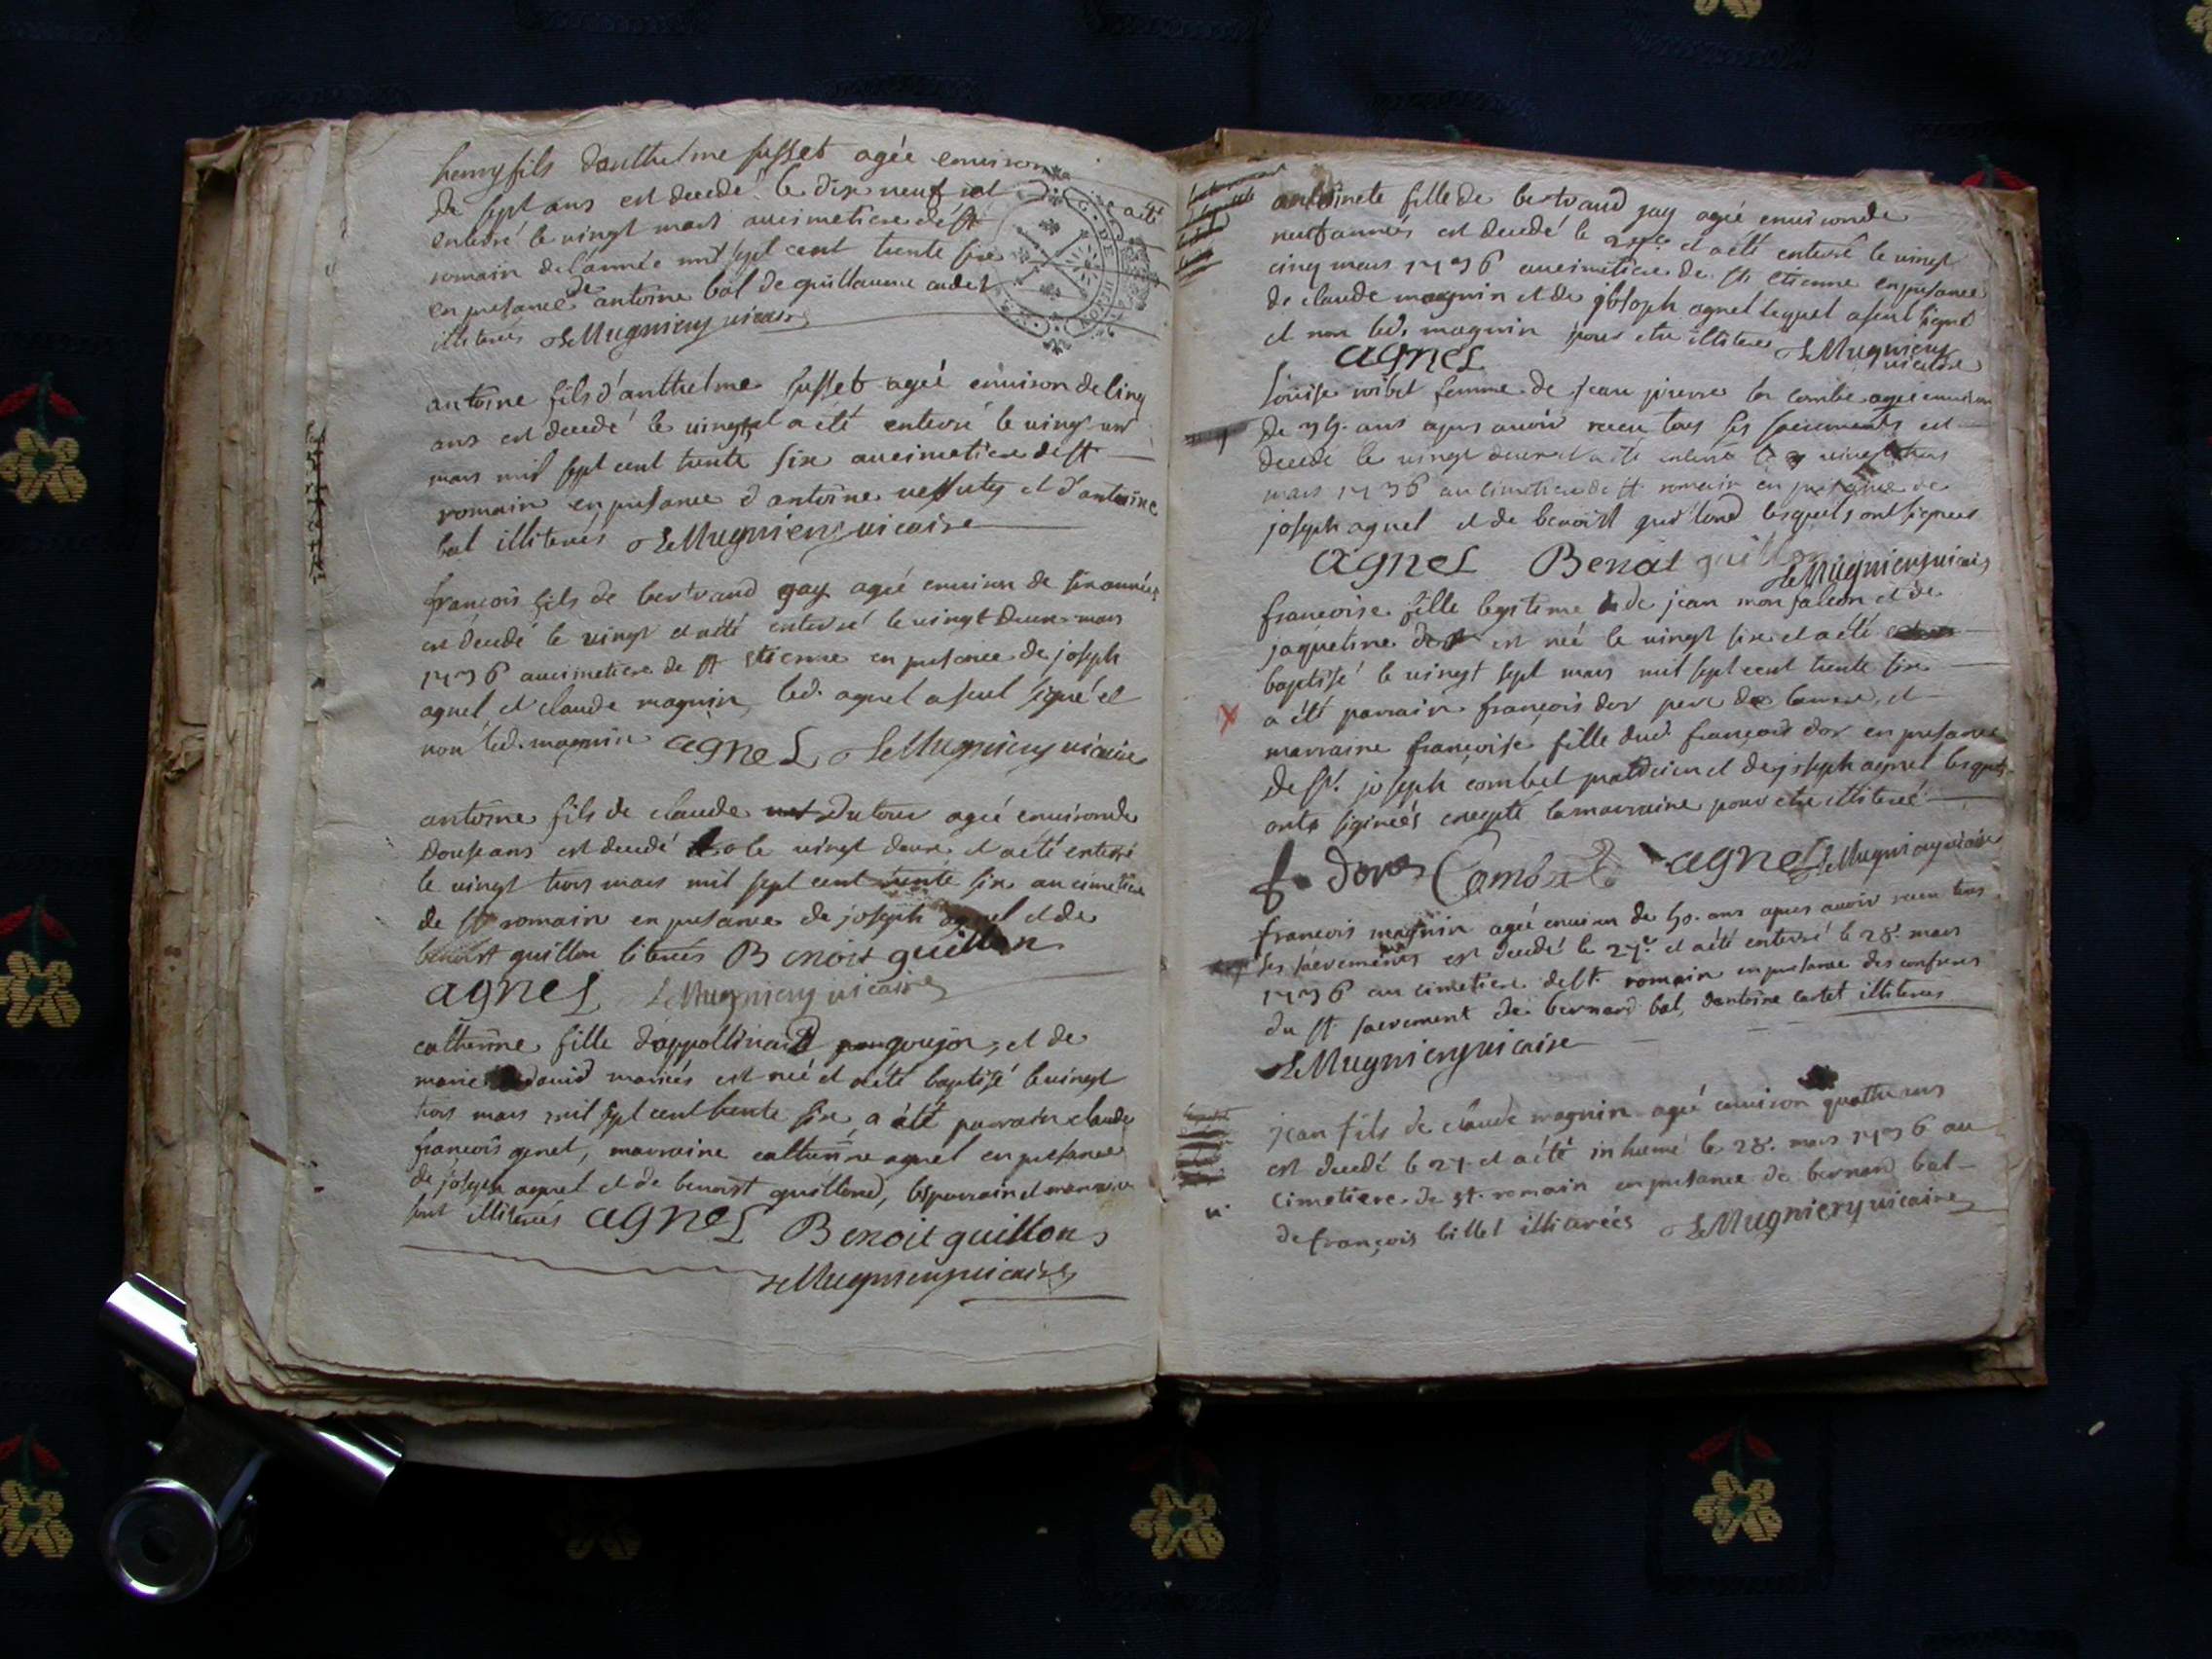 henry fils danthelme susset agée environ
de sept ans est decedé le dix neuf et a été
enterré le vingt mars au cimetiere de st
romain de l'année mil sept cent trente six
en presance de antoine bal de guillaume cadet
illiterés Mugniery vicaire
antoine fils d'anthelme susset agée environ de cinq
ans est decedé le vingt et a eté enterré le vingt un
mars mil sept cent trente six au cimetiere de st
romain en presance d'antoine et d'antoine
bal illiterés Mugniery vicaire
françois fils de bertrand gay agée environ de six années
est decedé le vingt et a eté enterré le vingt deux mars
1736 au cimetiere de st etienne en presence de joseph
agnel et claude magnin, led. agnel a seul signé et
non led. magnin agnel Mugniery vicaire
antoine fils de claude dutour agée environ de
douse ans est decedé le vingt deux et a eté enterré
le vingt trois mars mil sept cent trente six au cimetiere
de st romain en presance de joseph agnel et de
benoist guillon literés Benoit guillon
agnel Mugniery vicaire
catherine fille d'appollinard goujon, et de
marie david mariés est née et a eté baptisé le vingt
trois mars mil sept cent trente six a été parrain claude
françois genet, marraine catherine agnel en presance
de joseph agnel et de benoist guillond, les parrain et marraine
sont illiterés agnel Benoit guillon
Mugniery vicaire
antoinete fille de bertrand gay agée environ de
neuf années est decedé le et a été enterré le vingt
cinq mars 1736 au cimetiere de st etienne en presance
de claude magnin et de joseph agnel lequel a seul signé
et non led. magnin pour etre illiteré Mugniery
agnel vicaire
Louise femme de jean pierre la combe agée environ
de ans apres avoir receu tous ses sacrements est
decedé le vingt deux et a eté enterré le vingt trois
mars 1736 au cimetiere de st romain en presance de
joseph agnel et de benoist guillond lesquels ont signees
agnel Benoit guillon Mugniery vicaire
francoise fille legitime de jean monfalcon et de
jaquetine dor est née le vingt six et a eté
baptisé le vingt sept mars mil sept cent trente six
a été parrain françois dor pere de la mere, et
marraine françoise fille dud. françois dor en presance
de st. joseph combet praticien et de joseph agnel lesquels
ont signéés excepté la marraine pour etre illiteré
f. dor Combet agnel Mugniery vicaire
francois magnin agée environ de 50. ans apres avoir receu tous
ses sacrements est decedé le 27e. et a été enterré le 28. mars
1736 au cimetiere de st. romain en presance des confreres
du st sacrement de bernard bal, dantoine cartet illiterés
Mugniery vicaire
jean fils de claude magnin agée environ quatre ans
est decedé le 27. et a été inhumé le 28. mars 1736 au
cimetiere de st. romain en presance de bernard bal
de françois billet illiterées Mugniery vicaire